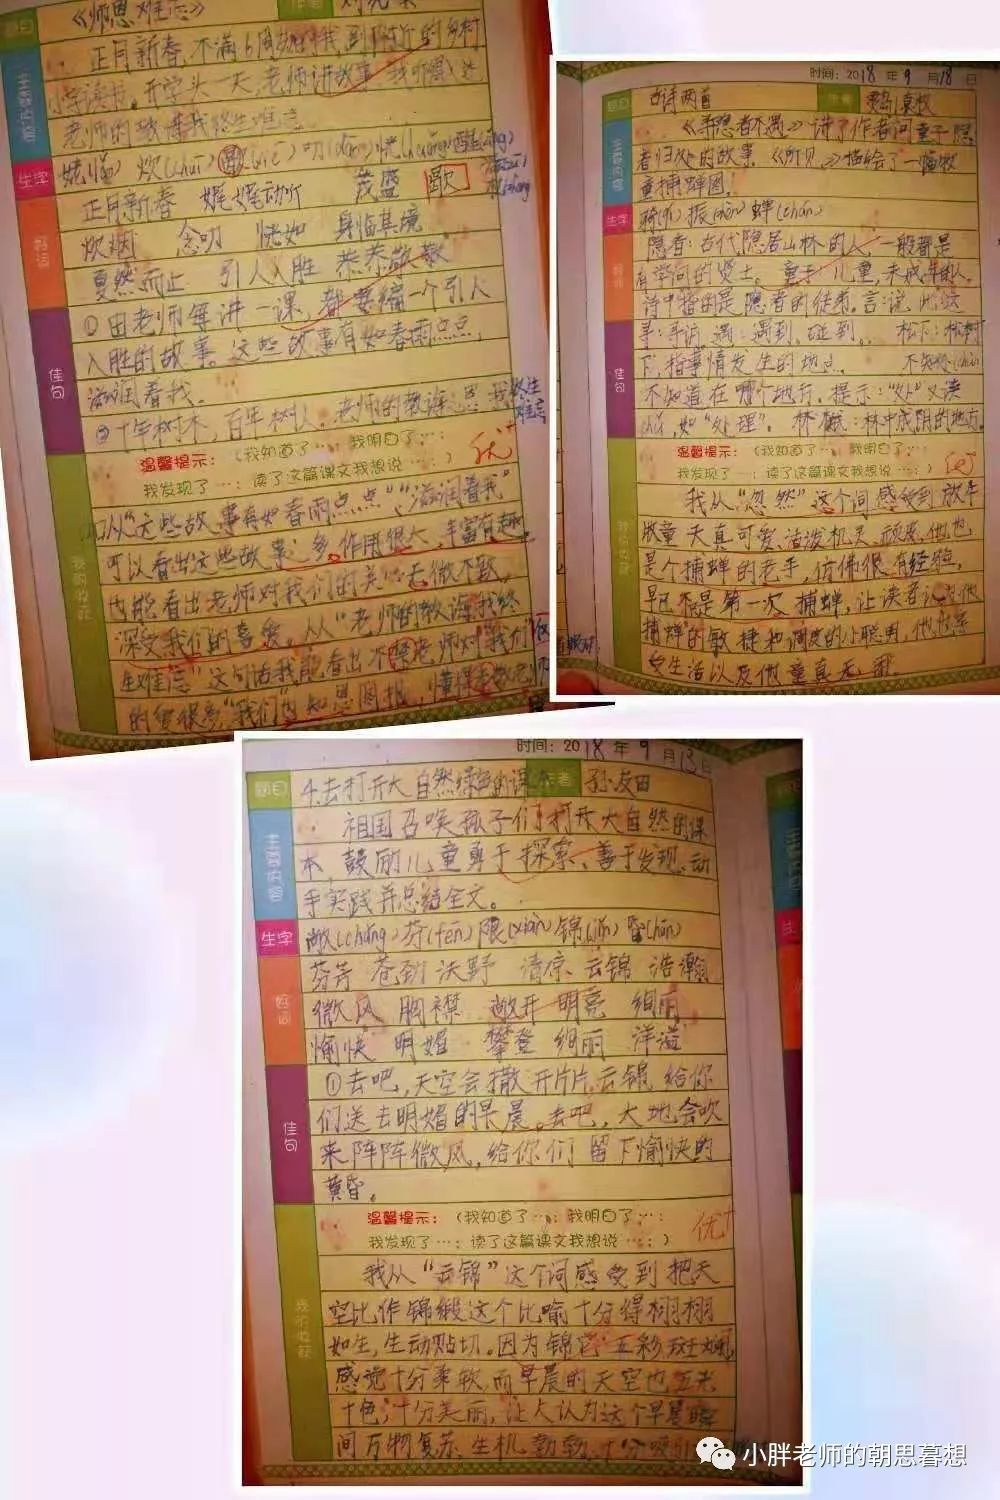 《师恩难忘》
正月新春，不满6周岁的我，到附近的乡村
小学读书。开学头一天，老师讲故事
老师的教诲我终生难忘
生字
正月新春 娓娓动听 茂盛 歇
炊烟 念叨 恍如 身临其境
戛然而止 引人入胜 恭恭敬敬
佳句
①田老师每讲一课，都要编一个引人
入胜的故事。这些故事有如春雨点点，
滋润着我。
②十年树木，百年树人。老师的教诲之恩，我终生难忘
温馨提示：（我知道了…；我明白了…；
我发现了…；读了这篇课文我想说…；）
优+
我从“这些故事有如春雨点点”“滋润着我”
可以看出这些故事多，作用很大，丰富有趣。
也能看出老师对我们的关心无微不致，
深受我们的喜爱。从“老师的教诲我终
生难忘”这句话我能看出
时间：2018年9月18日
题目 古诗两首 作者
《寻隐者不遇》讲了作者问童子隐
者归处的故事。《所见》描给了一幅牧
童捕蝉图！
生字 骑(qí) 振(zhèn) 蝉(chán)
隐者：古代隐居山林的人，一般都是
有学问的贤士。童子：儿童，未成年的人。
诗中指的是隐者的徒弟。言：说。此：这
寻：寻访。遇：遇到，碰到。 松下：松树
下，指事情发生的地点。 不知处(chù)
不知道在哪个地方。提示：“处”又读
chǔ，如“处理”。 林樾：林中成阴的地方。
佳句
温馨提示：（我知道了…；我明白了…；
我发现了…；读了这篇课文我想说…；）
我从“忽然”这个词感受到放牛
牧童天真可爱、活泼机灵、顽皮，他也
是个捕蝉的老手，仿佛很有经验，
早已不是第一次捕蝉，让读者
捕蝉的敏捷和调皮的小聪明，
生活以及他童真无邪
时间：2018年9月13日
题目 4.去打开大自然绿色的课本 作者 孙友田
主要内容
祖国召唤孩子们打开大自然的课
本，鼓励儿童勇于探索、善于发现、动
手实践并总结全文。
生字 敞(chǎng) 芬(fēn) 限(xiàn) 锦(jǐn) 昏(hūn)
芬芳 苍劲 沃野 清凉 云锦 浩瀚
微风 胸襟 敞开 明亮 绚丽
愉快 明媚 攀登 绚丽 洋溢
佳句
①去吧，天空会撒开片片云锦，给你
们送去明媚的早晨。去吧，大地会吹
来阵阵微风，给你们留下愉快的
黄昏。
温馨提示：（我知道了…；我明白了…；
我发现了…；读了这篇课文我想说…；）
优+
我的收获
我从“云锦”这个词感受到把天
空比作锦缎这个比喻十分得栩栩
如生，生动贴切。因为锦它五彩斑斓，
感觉十分柔软，而早晨的天空也五光
十色，十分美丽，让人认为这个早晨瞬
间万物复苏、生机勃勃、十分
小胖老师的朝思暮想